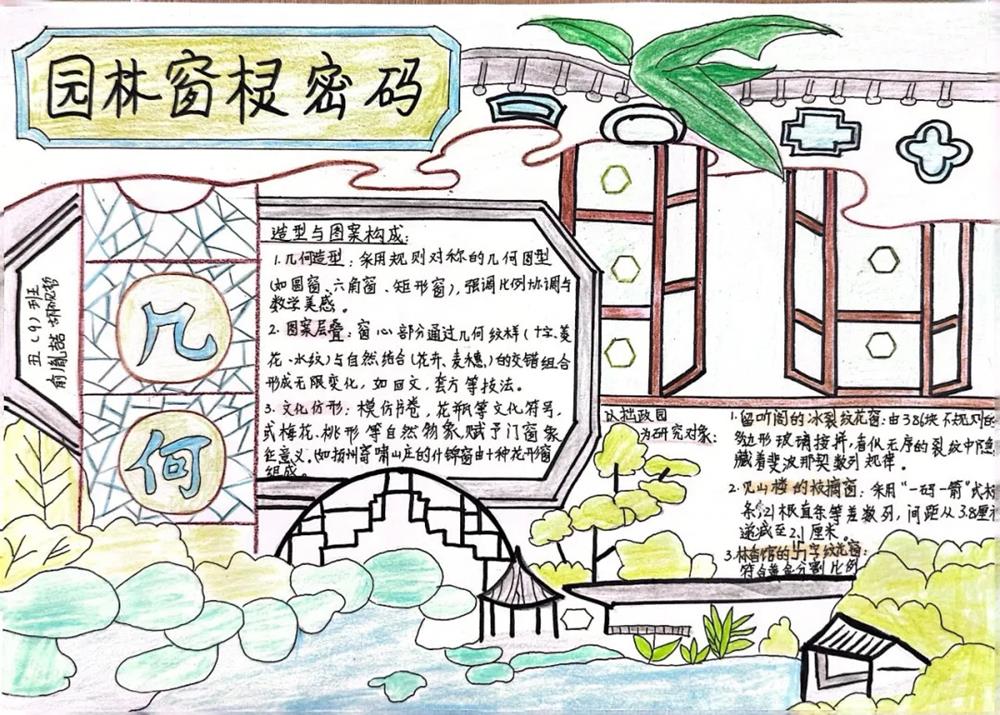 园林窗棂密码
五(9)班
俞胤喆
几何
造型与图案构成:
1.几何造型:采用规则对称的几何图型
(如圆窗、六角窗、矩形窗),强调比例协调与
数学美感。
2.图案层叠:窗心部分通过几何纹样(十字、菱
花、水纹)与自然结合(花卉、麦穗)的交错组合
形成无限变化,如回文,套方等技法。
3.文化仿形:模仿书卷,花瓶等文化符号,
或梅花、桃形等自然物象,赋予门窗象
征意义。如扬州寄啸山庄的什锦窗由十种花形窗
组成。
以拙政园
为研究对象:
1.留听阁的冰裂纹花窗:由386块不规则的
多边形玻璃接拼,看似无序的裂纹中隐
藏着斐波那契数列规律。
2.见山楼的 摘窗:采用“一码一箭”式
条,21根直条等差数列,间距从3.8厘
递减至2.1厘米。
3.林香馆的 字纹花窗:
符合黄金分割比例